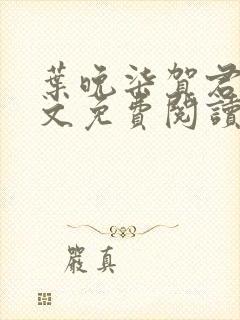 葉晚柒賀君
文免費閱讀
嚴真